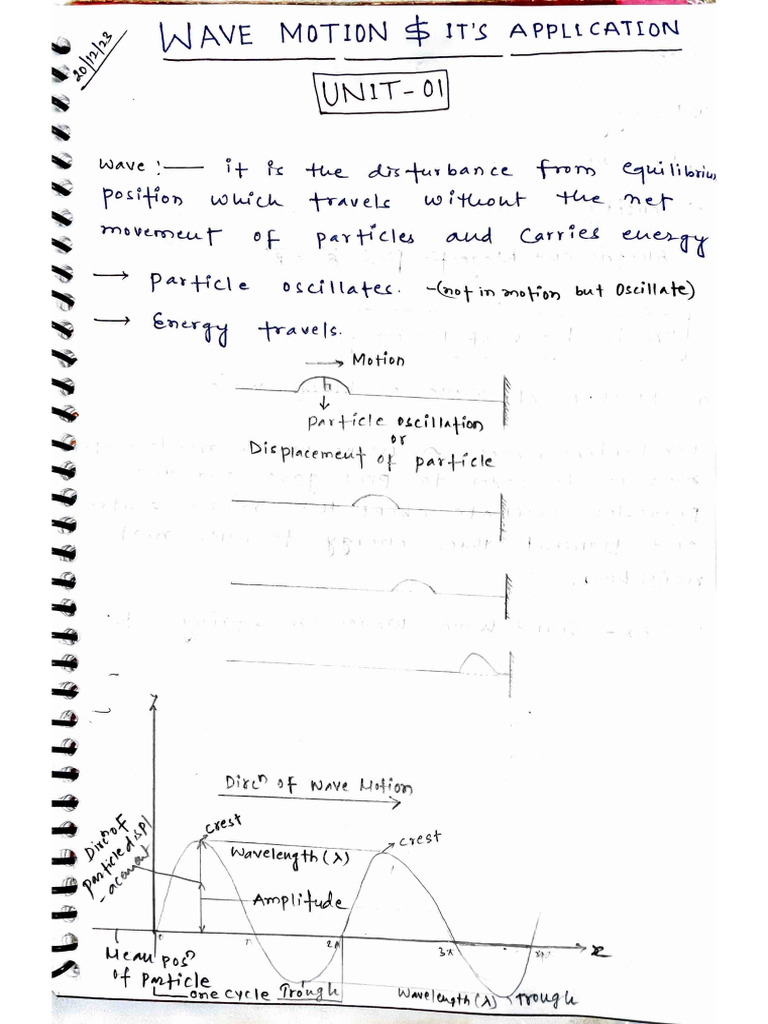 20/12/23
WAVE MOTION & IT'S APPLICATION
UNIT-01
Wave :— it is the disturbance from equilibrium
position which travels without the net
movement of particles and carries energy
→ Particle oscillates. -(not in motion but Oscillate)
→ Energy travels.
→ Motion
Particle oscillation
or
Displacement of particle
Dircⁿ of Wave Motion
crest
crest
Dircⁿ of
particle displ
-acement
Wavelength (λ)
Amplitude
0
π
2π
3π
4π
x
Mean posⁿ
of Particle
one cycle
Trough
Wavelength (λ)
Trough